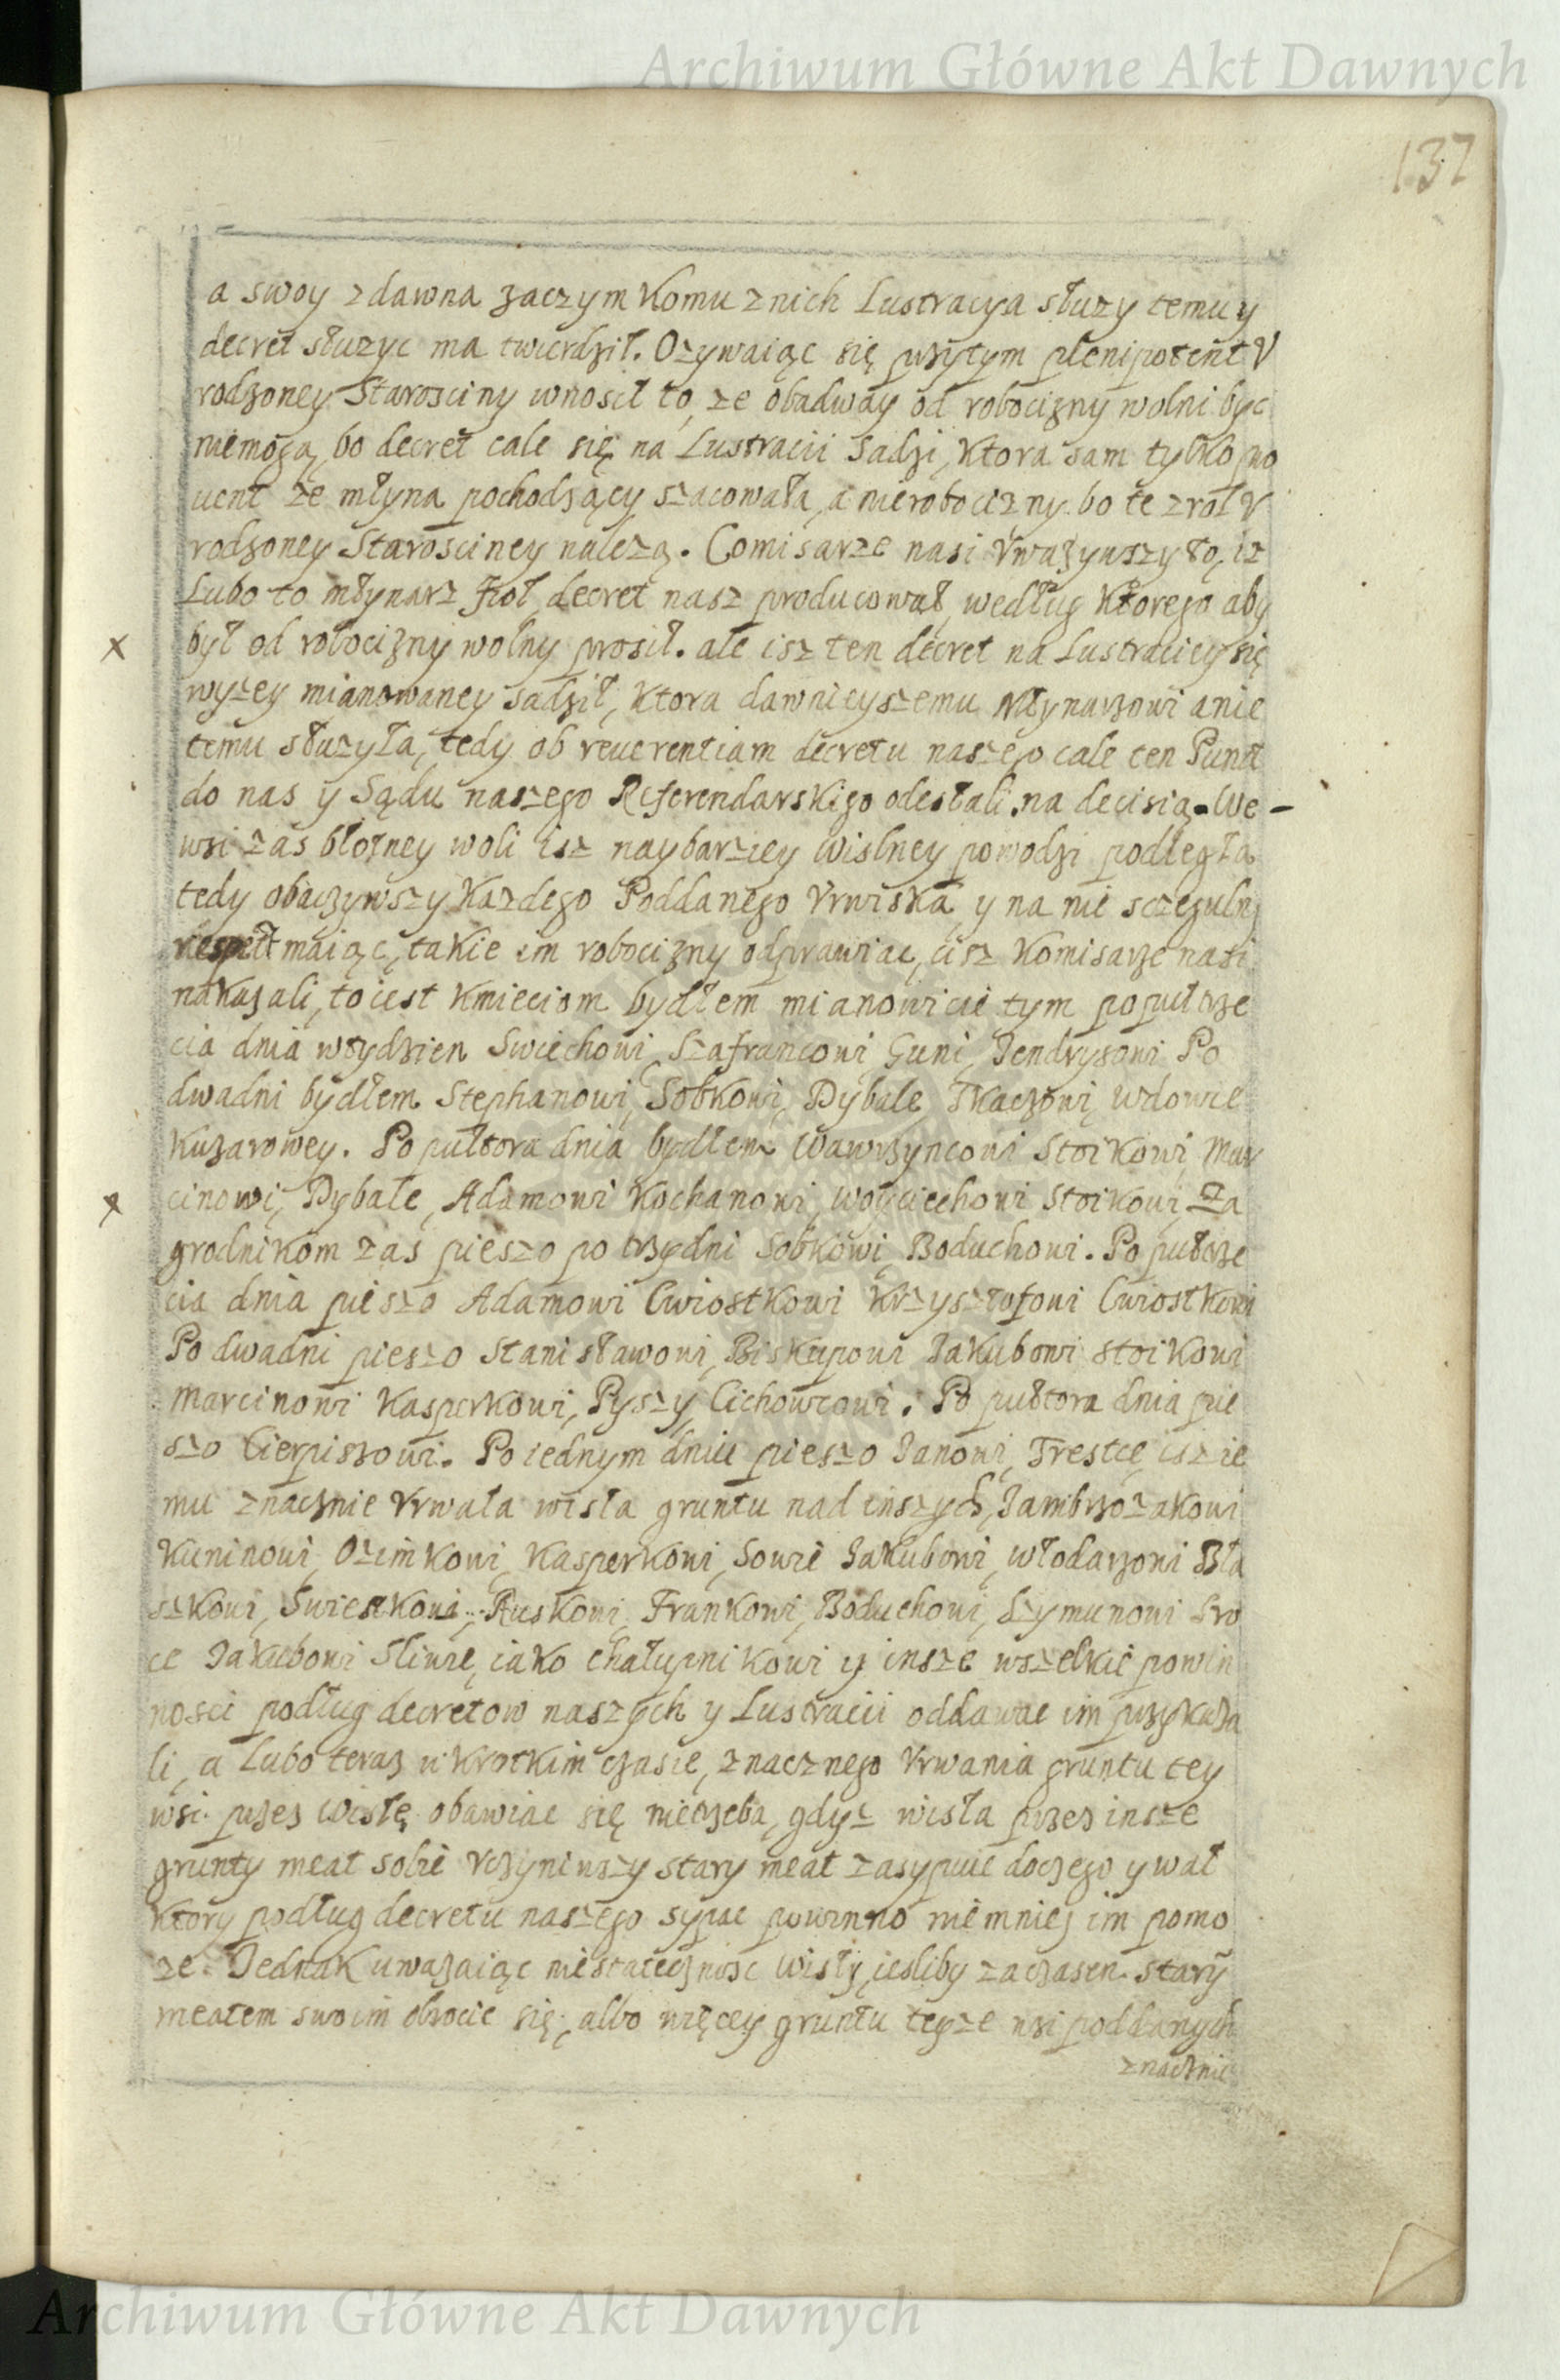 Archiwum Główne Akt Dawnych
137
a swoy zdawna zaczym komu znich Lustracya słuzy temu y
decret słuzyc ma twierdził. Ozywaiąc się przytym plenipotent V
rodzoney Starosciny wnosił to, ze obadway od robocizny wolni byc
niemogą, bo decret cale się na Lustracii sadzi, ktora sam tylko pro
uent ze młyna pochodzący szacowała, a nierobocizny. bo te z rol V
rodzoney Starosciney nalezą. Comisarze nasi Vwazywszy to, iz
Lubo to młynarz Jzoł decret nasz producował, według ktorego aby
x był od robocizny wolny prosił. ale isz ten decret na Lustraciey się
wyzey mianowaney sadził, ktora dawnieyszemu Młynarzowi anie
temu słuzyła, tedy ob reuerentiam decretu naszego cale ten Punct
do nas y Sądu naszego Referendarskiego odesłali na decisią. We-
wsi zas błotney woli isz naybarziey wislney powodzi podległa
tedy obaczywszy kazdego Poddanego Vrwiska, y na nie sczegulny
respect maiąc, takie im robocizny odprawiac, cisz Komisarze nasi
nakazali, toiest kmieciom bydłem mianowicie tym popułtrze
cia dnia wtydzien Swiechowi, Szafrancowi, Guni, Jendrysowi Po
dwadni bydłem Stephanowi, Sobkowi, Dybale, Tkaczowi, wdowie
Kuzarowey. Po pułtora dnia bydłem Wawrzyncowi Stoikowi, Mar
x cinowi, Dybale, Adamowi Kochanowi, woyciechowi Stoikowi, Za
grodnikom zas pieszo po trzydni Sobkowi, Boduchowi. Po pułtrze
cia dnia pieszo Adamowi Cwiostkowi Krzysztofowi Cwiostkowi
Po dwadni pieszo Stanisławowi, Biskupowi Jakubowi Stoikowi
Marcinowi Kasperkowi, Pyszy, Cichowcowi. Po pułtora dnia pie
szo Cierpiszowi. Po iednym dniu pieszo Janowi, Trestce, isz ie
mu znacznie Vrwała wisła gruntu nad inszych, Jambrzozakowi
Kuninowi, Ozimkowi, Kasperkowi, Sowie Jakubowi, włodarzowi Bła
szkowi, Swierkowi, Ruskowi, Frankowi, Boduchowi, Szymunowi Sro
ce Jakubowi Sliwie, iako chałupnikowi y insze wszelkie powin
nosci podług decretow naszych y Lustracii oddawac im przykaza
li, a Lubo teraz w krotkim czasie, znacznego Vrwania gruntu tey
wsi przez Wisłę obawiac się nietrzeba, gdyz wisła przez insze
grunty meat sobie Vczyniwszy stary meat zasypuie doczego y wał
ktory podług decretu naszego sypac powinno niemniej im pomo
ze. Jednak uwazaiąc niestateczność Wisły, iesliby zaczasem stary
meatem swoim obrocic się, albo więcey gruntu teyze wsi poddanych
znacznie
Archiwum Główne Akt Dawnych